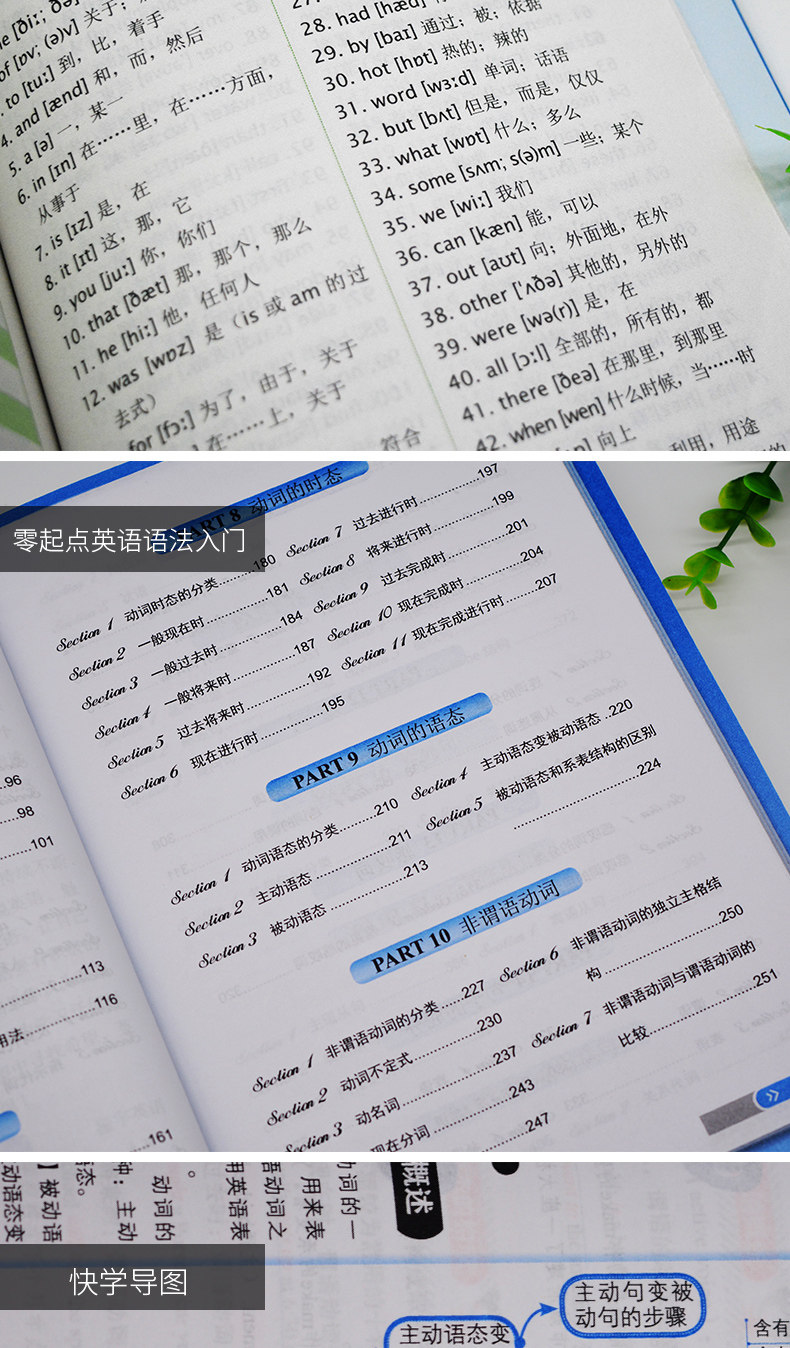 of [ɒv; (ə)v] 关于；
to [tuː] 到，比，着手
4. and [ænd] 和，而，然后
5. a [ə] 一，某一
6. in [ɪn] 在……里，在……方面，
从事于
7. is [ɪz] 是，在
8. it [ɪt] 这，那，它
9. you [juː] 你，你们
10. that [ðæt] 那，那个，那么
11. he [hiː] 他，任何人
12. was [wɒz] 是（is 或 am 的过
去式）
for [fɔː] 为了，由于，关于
在……上，关于
符合
28. had [hæd]
29. by [baɪ] 通过；被；依据
30. hot [hɒt] 热的；辣的
31. word [wɜːd] 单词；话语
32. but [bʌt] 但是，而是，仅仅
33. what [wɒt] 什么；多么
34. some [sʌm; s(ə)m] 一些；某个
35. we [wiː] 我们
36. can [kæn] 能，可以
37. out [aʊt] 向；外面地，在外
38. other ['ʌðə] 其他的，另外的
39. were [wə(r)] 是，在
40. all [ɔːl] 全部的，所有的，都
41. there [ðeə] 在那里，到那里
42. when [wen] 什么时候，当……时
向上
利用，用途
零起点英语语法入门
PART 8 动词的时态
Section 1 动词时态的分类………180
Section 2 一般现在时………………181
Section 3 一般过去时………………184
Section 4 一般将来时………………187
Section 5 过去将来时………………192
Section 6 现在进行时………………195
Section 7 过去进行时………………197
Section 8 将来进行时………………199
Section 9 过去完成时………………201
Section 10 现在完成时………………204
Section 11 现在完成进行时………207
PART 9 动词的语态
Section 1 动词语态的分类………210
Section 2 主动语态…………………211
Section 3 被动语态…………………213
Section 4 主动语态变被动语态..220
Section 5 被动语态和系表结构的区别
…………………………224
PART 10 非谓语动词
Section 1 非谓语动词的分类……227
Section 2 动词不定式………………230
Section 3 动名词……………………237
现在分词…………………243
247
Section 6 非谓语动词的独立主格结
构…………………………250
Section 7 非谓语动词与谓语动词的
比较………………………251
96
98
101
113
用法………………116
161
快学导图
概述
动词的一
用来表
语动词之
用英语表
。
动词的
种：主动
语态。
】被动语
动语态变
主动语态变
主动句变被
动句的步骤
含有